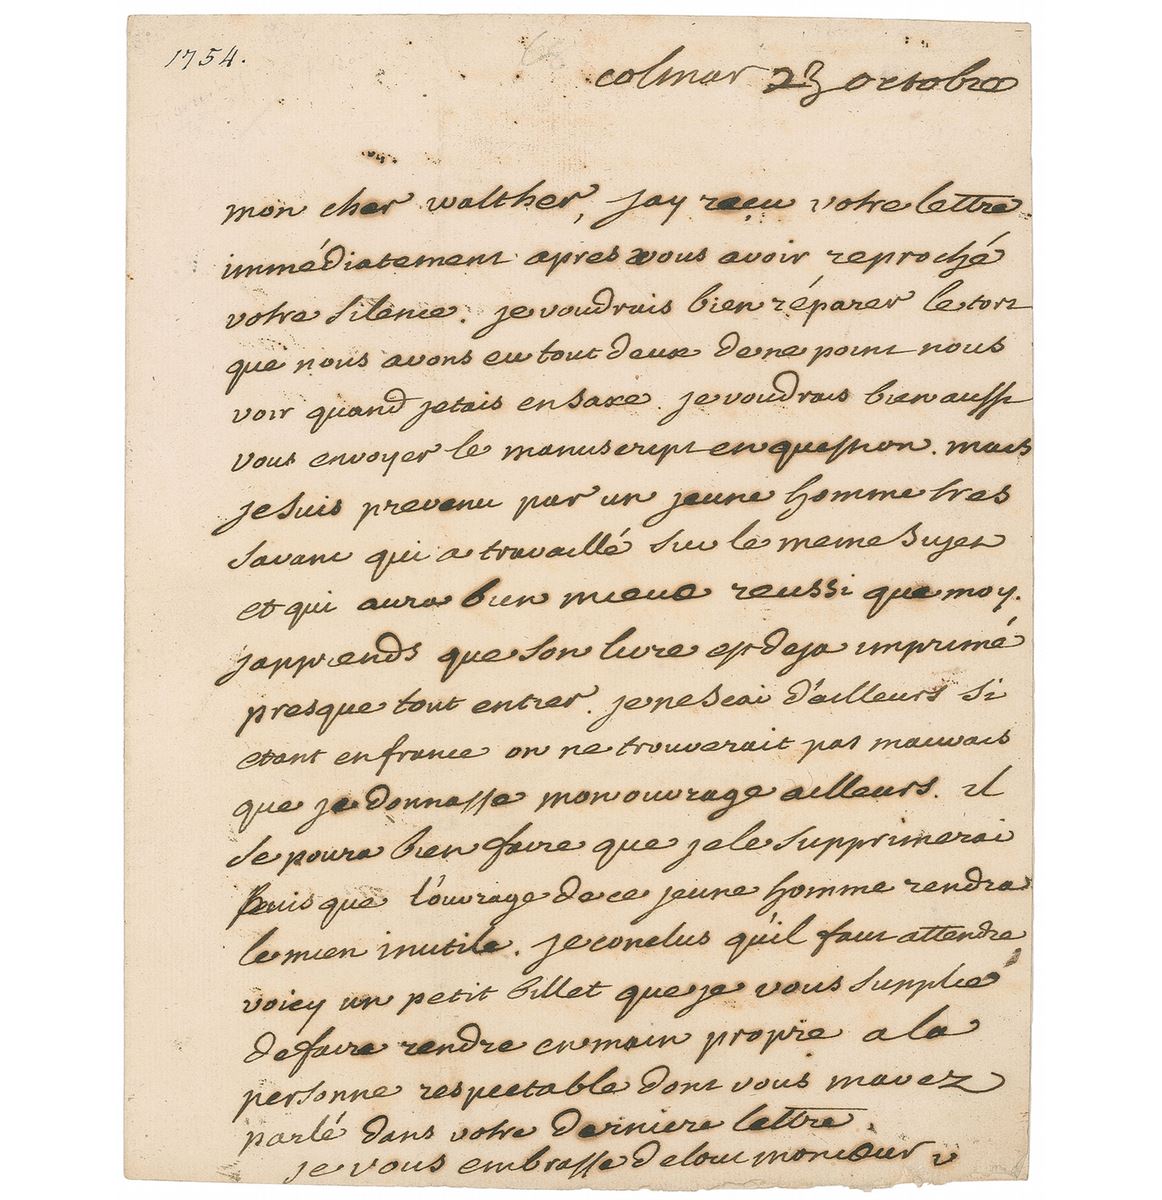 1754.
colmar 23 octobre
mon cher walther, jay reçu votre lettre
immédiatement apres vous avoir reproché
votre silence. je voudrais bien réparer le tort
que nous avons eu tout deux de ne point nous
voir quand jetais en saxe. je voudrais bien aussi
vous envoyer le manuscript en question. mais
je suis prevenu par un jeune homme tres
savant qui a travaillé sur le meme sujet
et qui aura bien mieux reussi que moy.
japprends que son livre est deja imprimé
presque tout entier. je ne scai d'ailleurs si
etant en france on ne trouverait pas mauvais
que je donnasse mon ouvrage ailleurs. il
se poura bien faire que je le supprimerai
puisque l'ouvrage de ce jeune homme rendra
le mien inutile. je conclus qu'il faut attendre
voicy un petit billet que je vous supplie
de faire rendre en main propre a la
personne respectable dont vous mavez
parlé dans votre derniere lettre.
je vous embrasse de tout mon cœur v